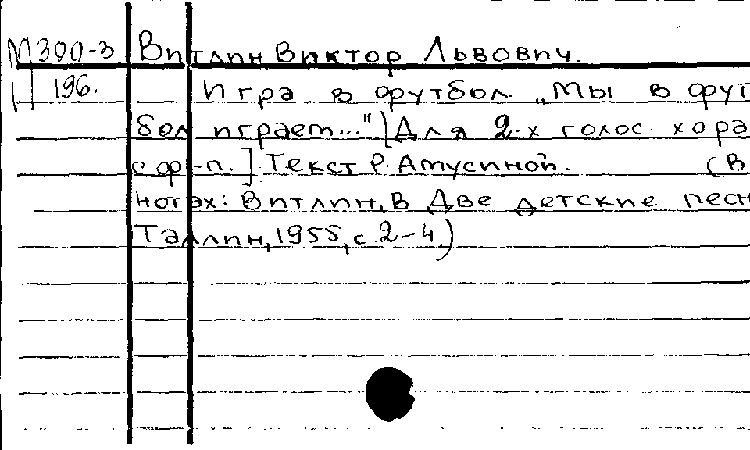 М390-3 Витлин Виктор Львович.
196. Игра в футбол. „Мы в фут
бол играем..." [Для 2-х голос. хора
с ф-п.]. Текст Р. Амусиной. (В
нотах: Витлин, В. Две детские песн
Таллин, 1955, с. 2-4.)